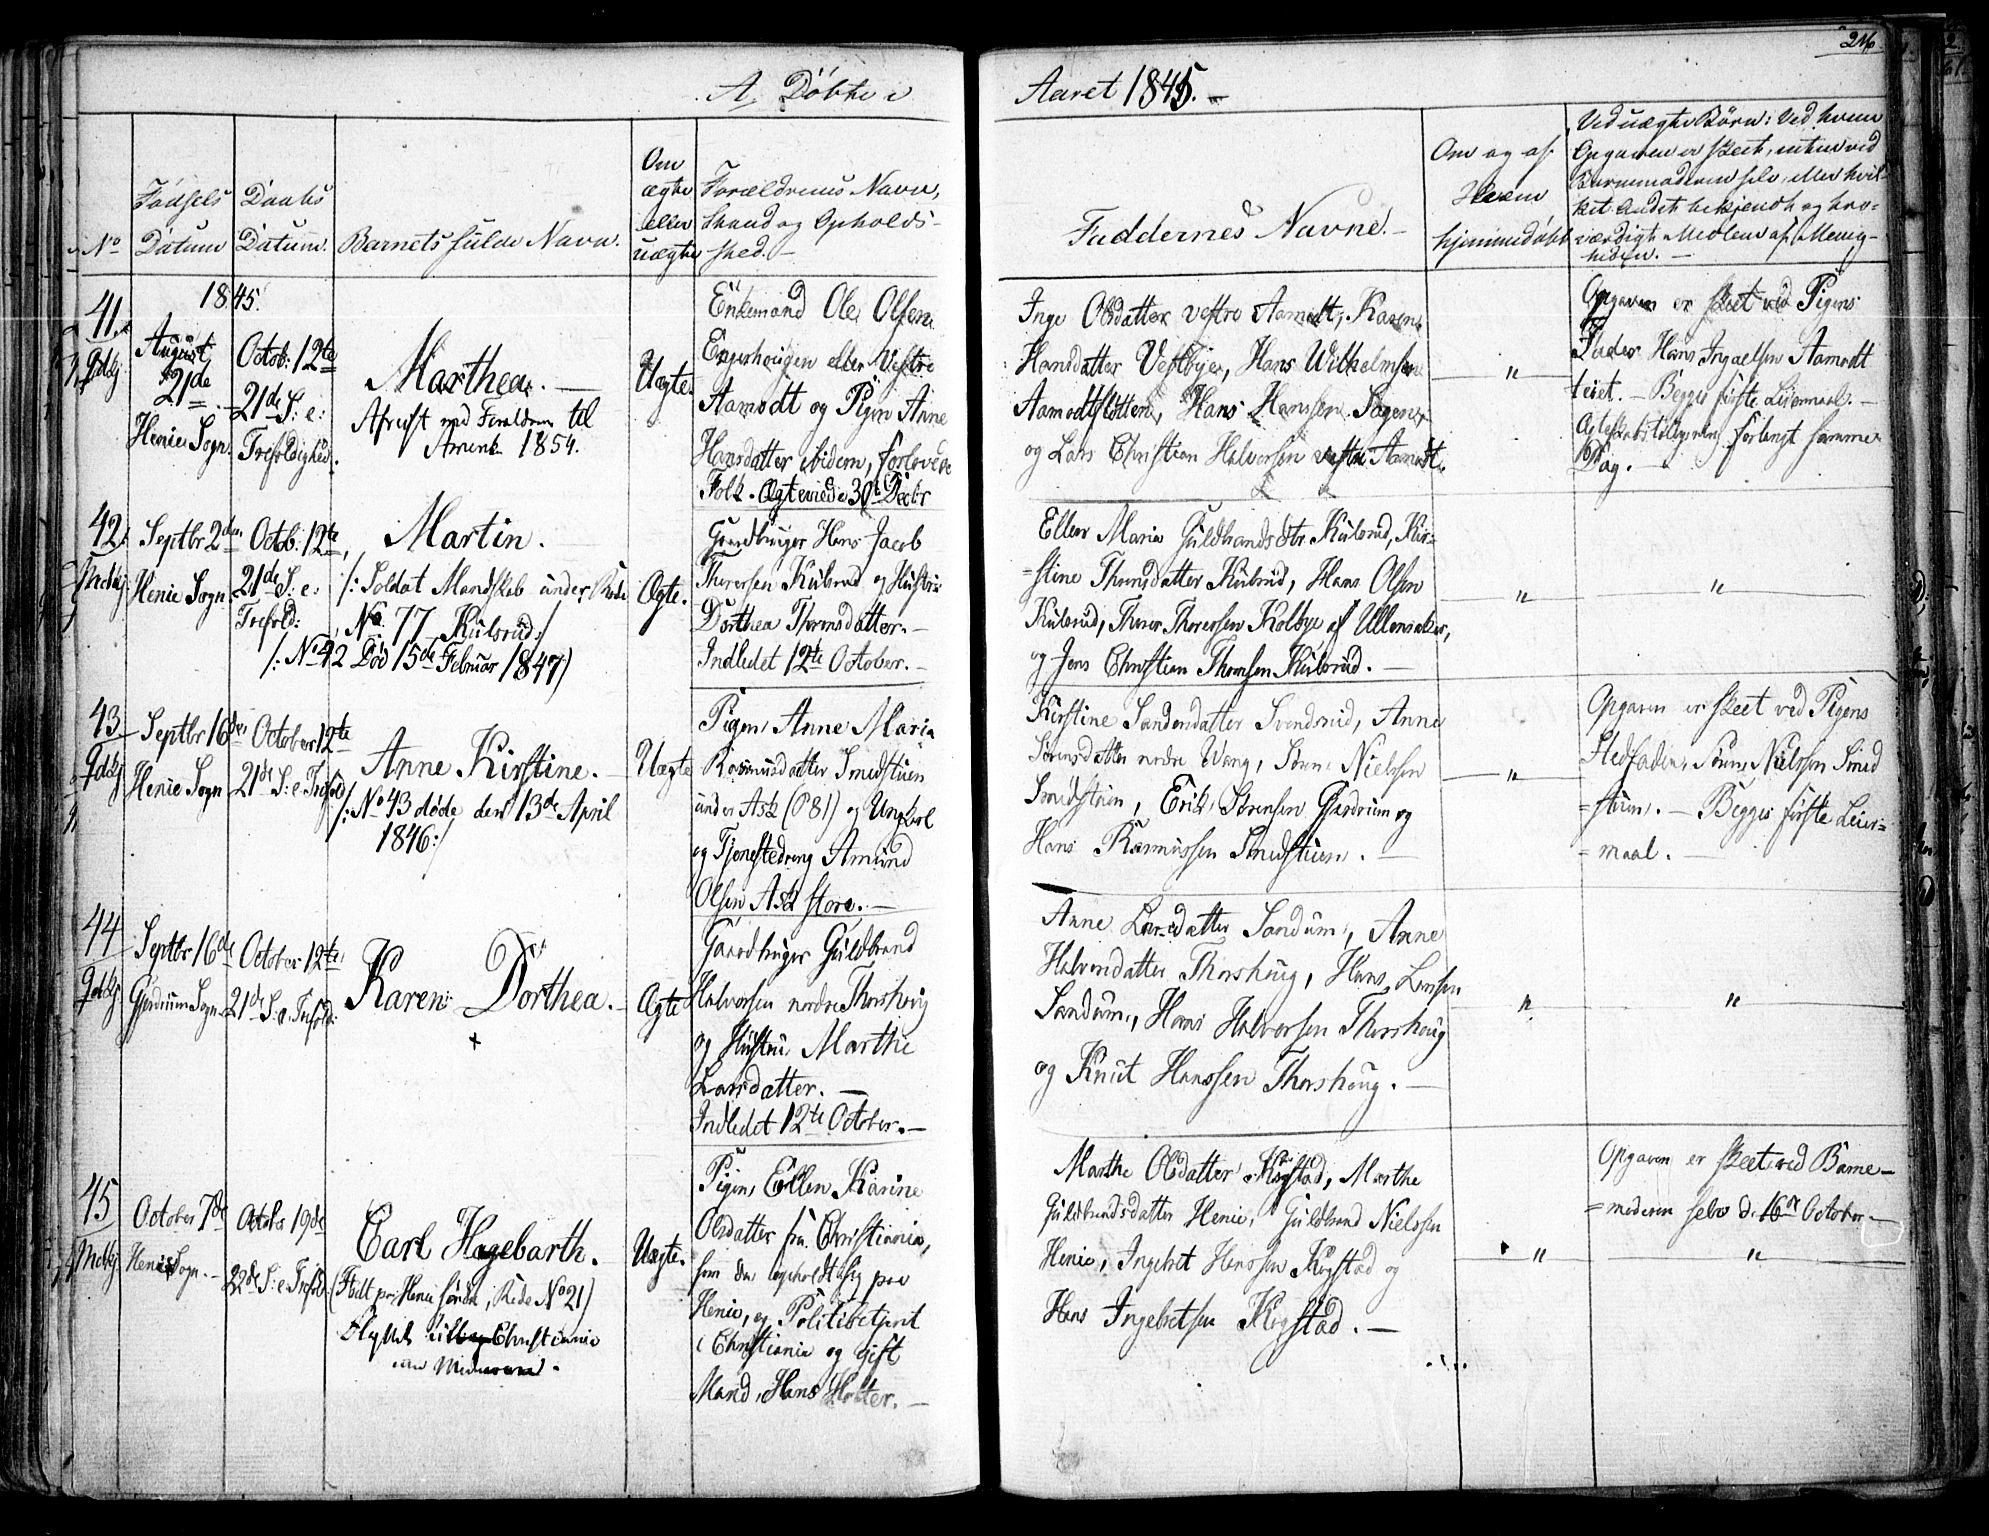 A Döbte i
Aaret 1845.
216
No
Födsels
Datum
Daabs
Datum.
Barnets fulde Navn.
Om
ægte
eller
uægte
Forældrenes Navn,
Stand og Opholds-
sted.
Faddernes Navne.
Om og af
Hvem
hjemmedöbt
Ved uægte Börn: Ved hvem
Opgaven er skeet, enten ved
Barnemoderen selv, eller hvil-
ket andet bekjendt og tro-
værdigt Medlem af Menig-
heden.
41.
Pdbj
1845.
August
21de
Henie Sogn.
Octob: 12te
21de S: e:
Trefoldighed.
Marthea.
Afreist med Forældrene til
Amerik 1854.
Uægte.
Enkemand Ole Olsen
Engerhougen eller Vestre
Aamodt og Pigen Anne
Hansdatter ibidem, forlovede
Folk. Ægteviede 30te Decbr
Inge Olsdatter vestre Aamodt, Karen
Hansdatter Vestbye, Hans Wilhelmsen
Aamodtslotten, Hans Hanssen Sogen,
og Lars Christian Halvorsen vestre Aamodt.
"
Opgaven er skeet ved Pigens
Fader Hans Ingvelsen Aamodt
teiet. - Begges förste Leiermaal. -
Ægteskabstillysning forlangt samme
Dag.
42.
Mcbj
Septbr 2den
Henie Sogn.
Octob: 12te,
21de S: e:
Trefold:
Martin.
/: Soldat Mandskab under Rode
No. 77 Kulsrud:/
/: No 42 Död 15de Februar 1847:/
Ægte.
Gaardbruger Hans Jacob
Thoresen Kulsrud og Hustru
Dorthea Thoresdatter.
Indledet 12te October.
Ellen Maria Guldbrandsdtr. Kulsrud, Kir-
=stine Thoresdatter Kulsrud, Hans Olsen
Kulsrud, Thore Thoresen Kolbye af Ullensaker,
og Jens Christian Thoresen Kulsrud.
"
"
43
Pdbj
Septbr 16de
Henie Sogn
October 12te
21de S: e: Trefold
Anne Kirstine.
/: No 43 döde den 13de April
1846:/
Uægte
Pigen Anne Maria
Rasmusdatter Smedstuen
under Ask (P81) og Ungkarl
og Tjenestedreng Amund
Olsen Ask store.
Kirstine Sandersdatter Svendsrud, Anne
Sörensdatter nedre Wang, Sören Nielssen
Smedstuen, Erik Sörensen Gjerdrum og
Hans Rasmussen Smedstuen.
"
Opgaven er skeet ved Pigens
Stedfader, Sören Nielssen Smed
=stuen. - Begges förste Leier=
=maal.
44
Pdbj
Septbr 16de
Gjerdrum Sogn.
October 12te
21de S: e. Trefold:
Karen Dorthea.
+
Ægte
Gaardbruger Guldbrand
Halvorsen nordre Thorshoug
og Hustru Marthe
Larsdatter.
Indledet 12te October.
Anne Larsdatter Sandum, Anne
Halvorsdatter Thorshoug, Hans Larsen
Sandum, Hans Halvorsen Thorshoug
og Knut Hanssen Thorshoug.
"
"
45
Mcbj
October 7de
Henie Sogn.
Octobr 19de
22de S: e: Trefold:
Carl Hagebarth.
(Födt paa Henie söndre, Rode No 21)
Flyttet til Christiania
med Moderen.
Uægte.
Pigen Ellen Karine
Olsdatter fra Christiania,
som da opholdt sig paa
Henie, og Politibetjent
i Christiania og gift
Mand, Hans Holter.
Marthe Olsdatter Kogstad, Marthe
Guldbrandsdatter Henie, Guldbrand Nielssen
Henie, Ingebret Hanssen Kogstad og
Hans Ingebretsen Kogstad.
"
Opgaven er skeet ved Barne-
=moderen selv d. 16de October.
"